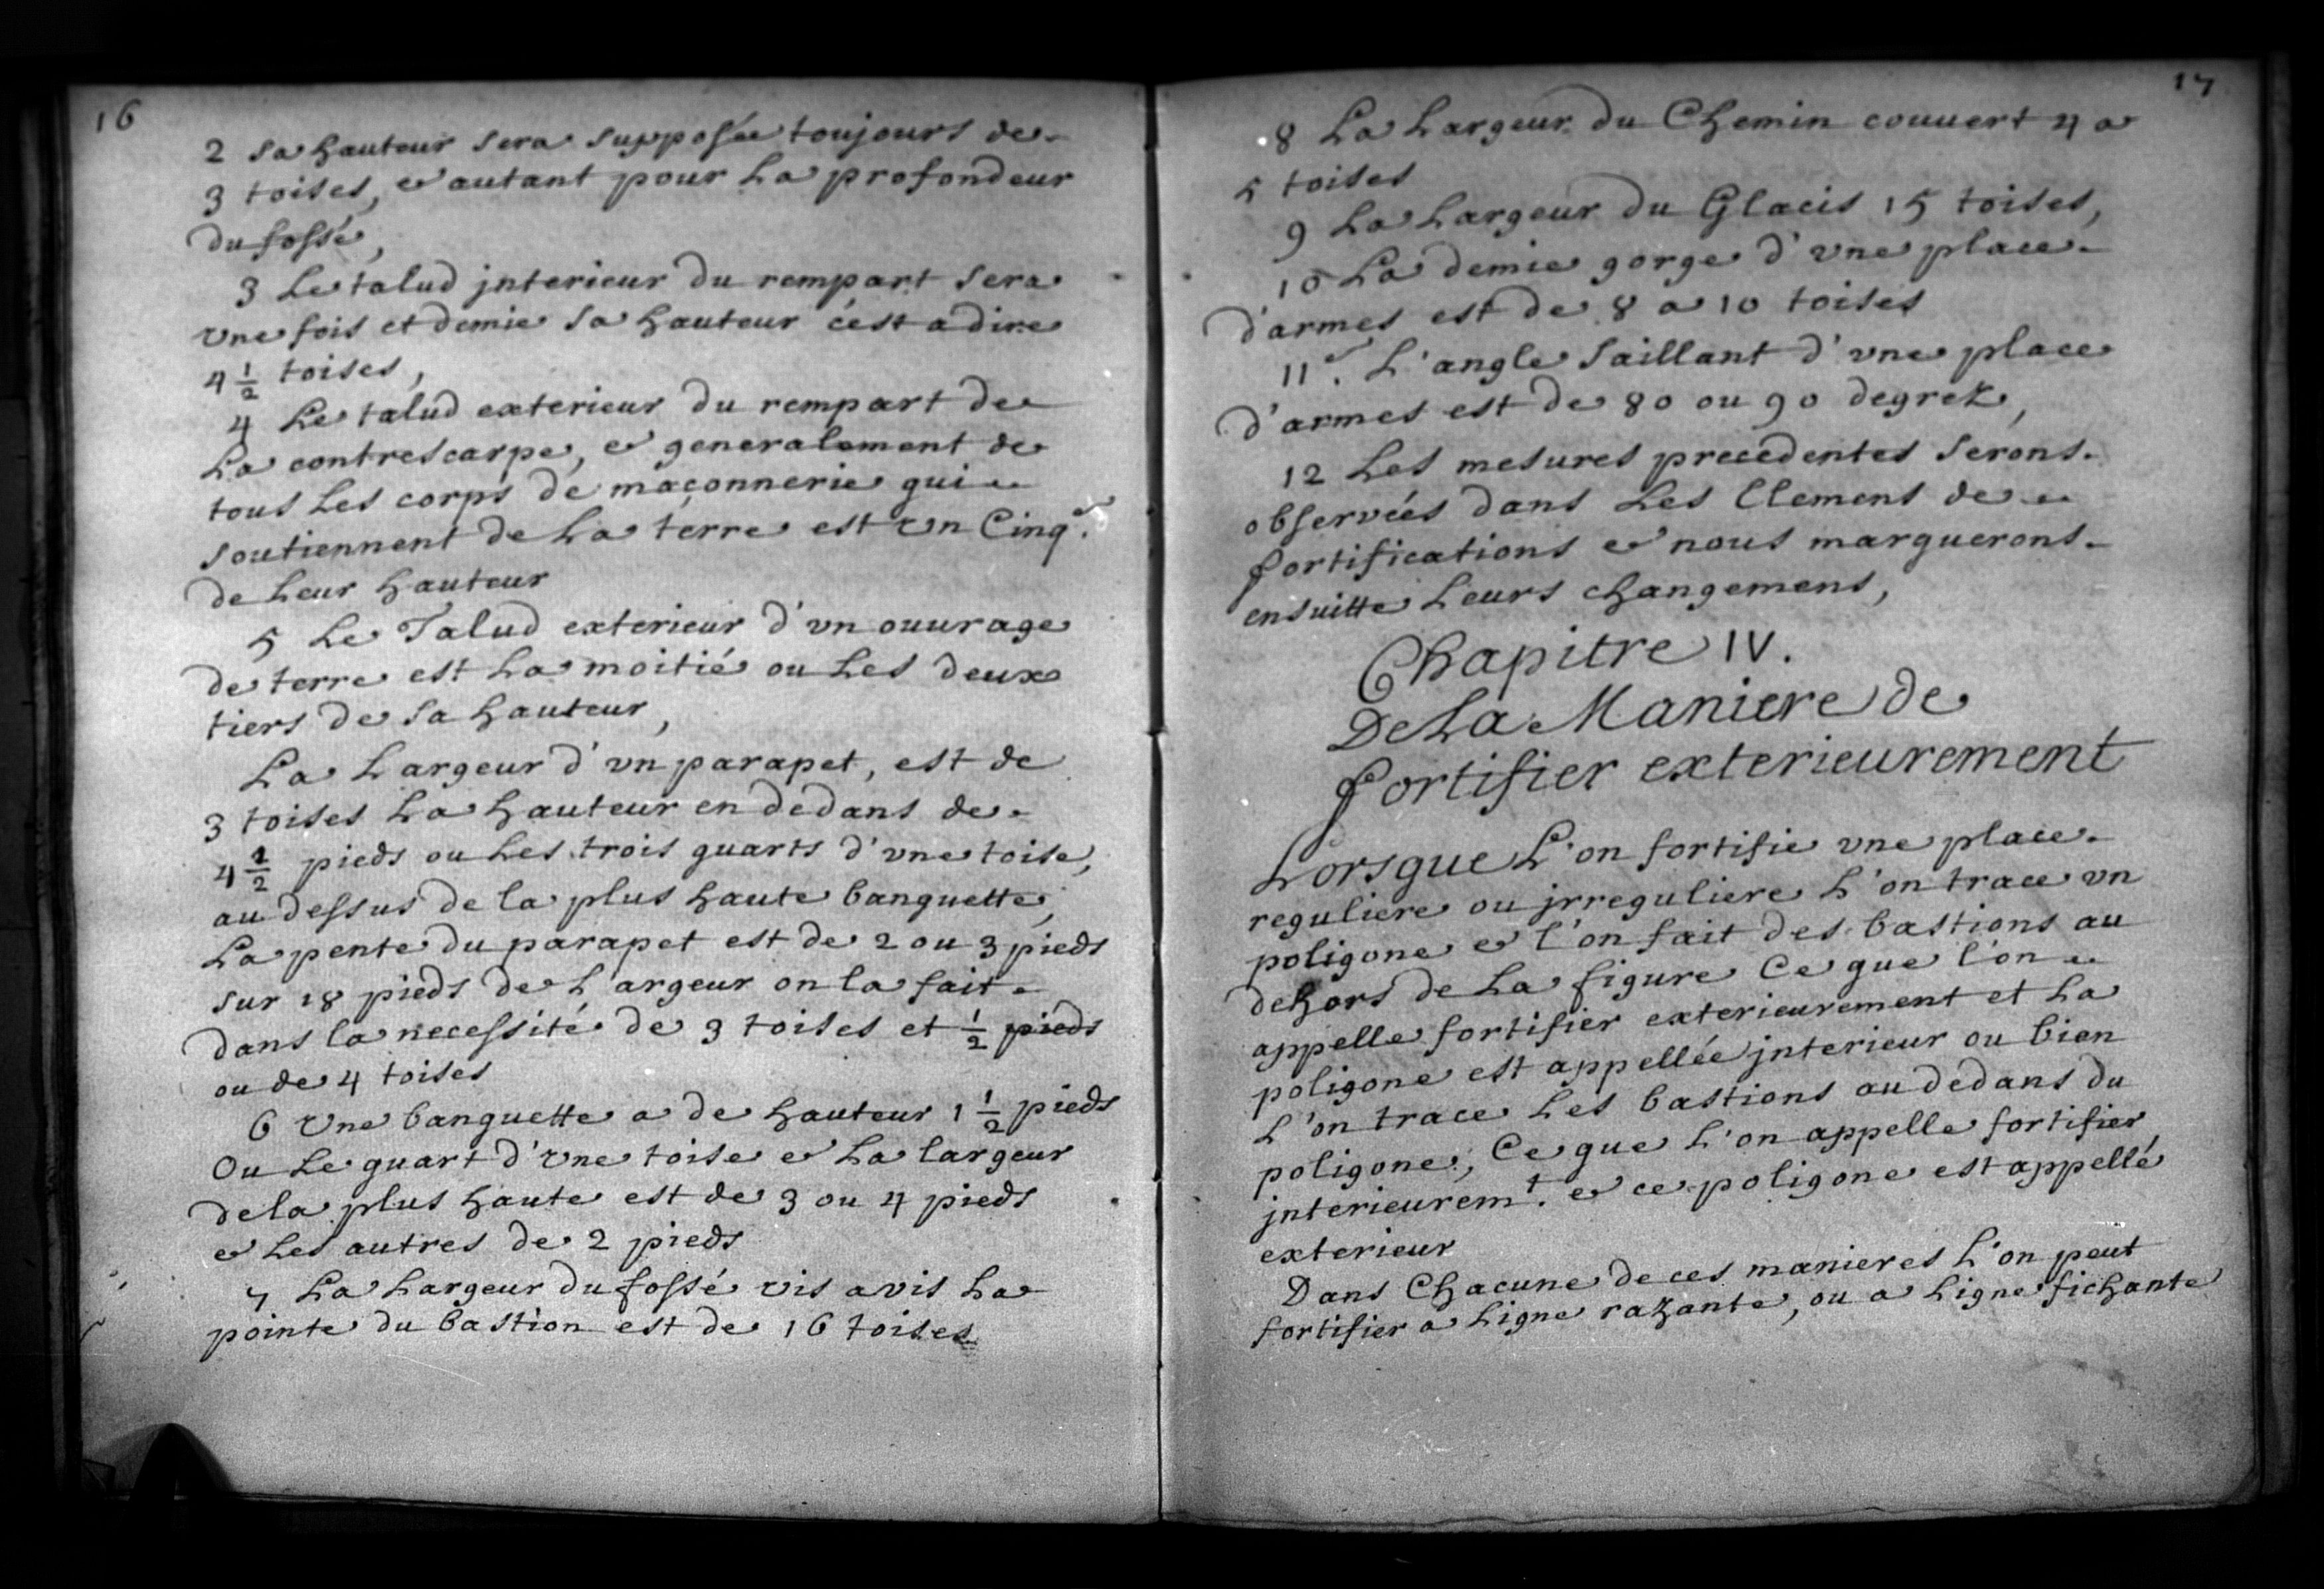 16
2 sa hauteur sera supposée toujours de
3 toises, & autant pour La profondeur
du fossé,
3 Le talud jnterieur du rempart sera
vne fois et demie sa hauteur c'est a dire
4 1/2 toises,
4 Le talud exterieur du rempart de
La contrescarpe, & generalement de
tous Les corps de maçonnerie qui
soutiennent de La terre est vn Cinq.e
de Leur hauteur
5 Le Talud exterieur d'vn ouurage
de terre est La moitié ou Les deux
tiers de sa hauteur,
La Largeur d'vn parapet, est de
3 toises La hauteur en dedans de
4 1/2 pieds ou Les trois quarts d'vne toise,
au dessus de la plus haute banquette,
La pente du parapet est de 2 ou 3 pieds
sur 18 pieds de Largeur on la fait
dans la necessité de 3 toises et 1/2 pieds
ou de 4 toises
6 Vne banquette a de hauteur 1 1/2 pieds
Ou Le quart d'vne toise & La largeur
de la plus haute est de 3 ou 4 pieds
& Les autres de 2 pieds
7 La Largeur du fossé vis a vis La
pointe du bastion est de 16 toises
17
8 La Largeur du Chemin couuert 4 a
5 toises
9 La Largeur du Glacis 15 toises,
10 La demie gorge d'vne place
d'armes est de 8 a 10 toises
11.e L'angle saillant d'vne place
d'armes est de 80 ou 90 degrez,
12 Les mesures precedentes serons
observées dans Les Element de
fortifications & nous marquerons
ensuitte Leurs changemens,
Chapitre IV.
De La Maniere de
fortifier exterieurement
Lorsque L'on fortifie vne place
reguliere ou jrreguliere L'on trace vn
poligone & l'on fait des bastions au
dehors de La figure Ce que l'on
appelle fortifier exterieurement et La
poligone est appellée jnterieur ou bien
L'on trace Les bastions au dedans du
poligone, Ce que L'on appelle fortifier
jnterieurem.t & ce poligone est appellé
exterieur
Dans Chacune de ces manieres L'on peut
fortifier a Ligne razante, ou a Ligne fichante